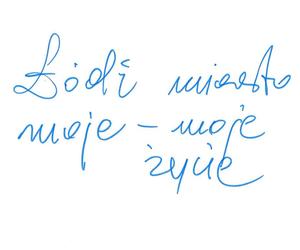 Łódź miasto
moje - moje
życie